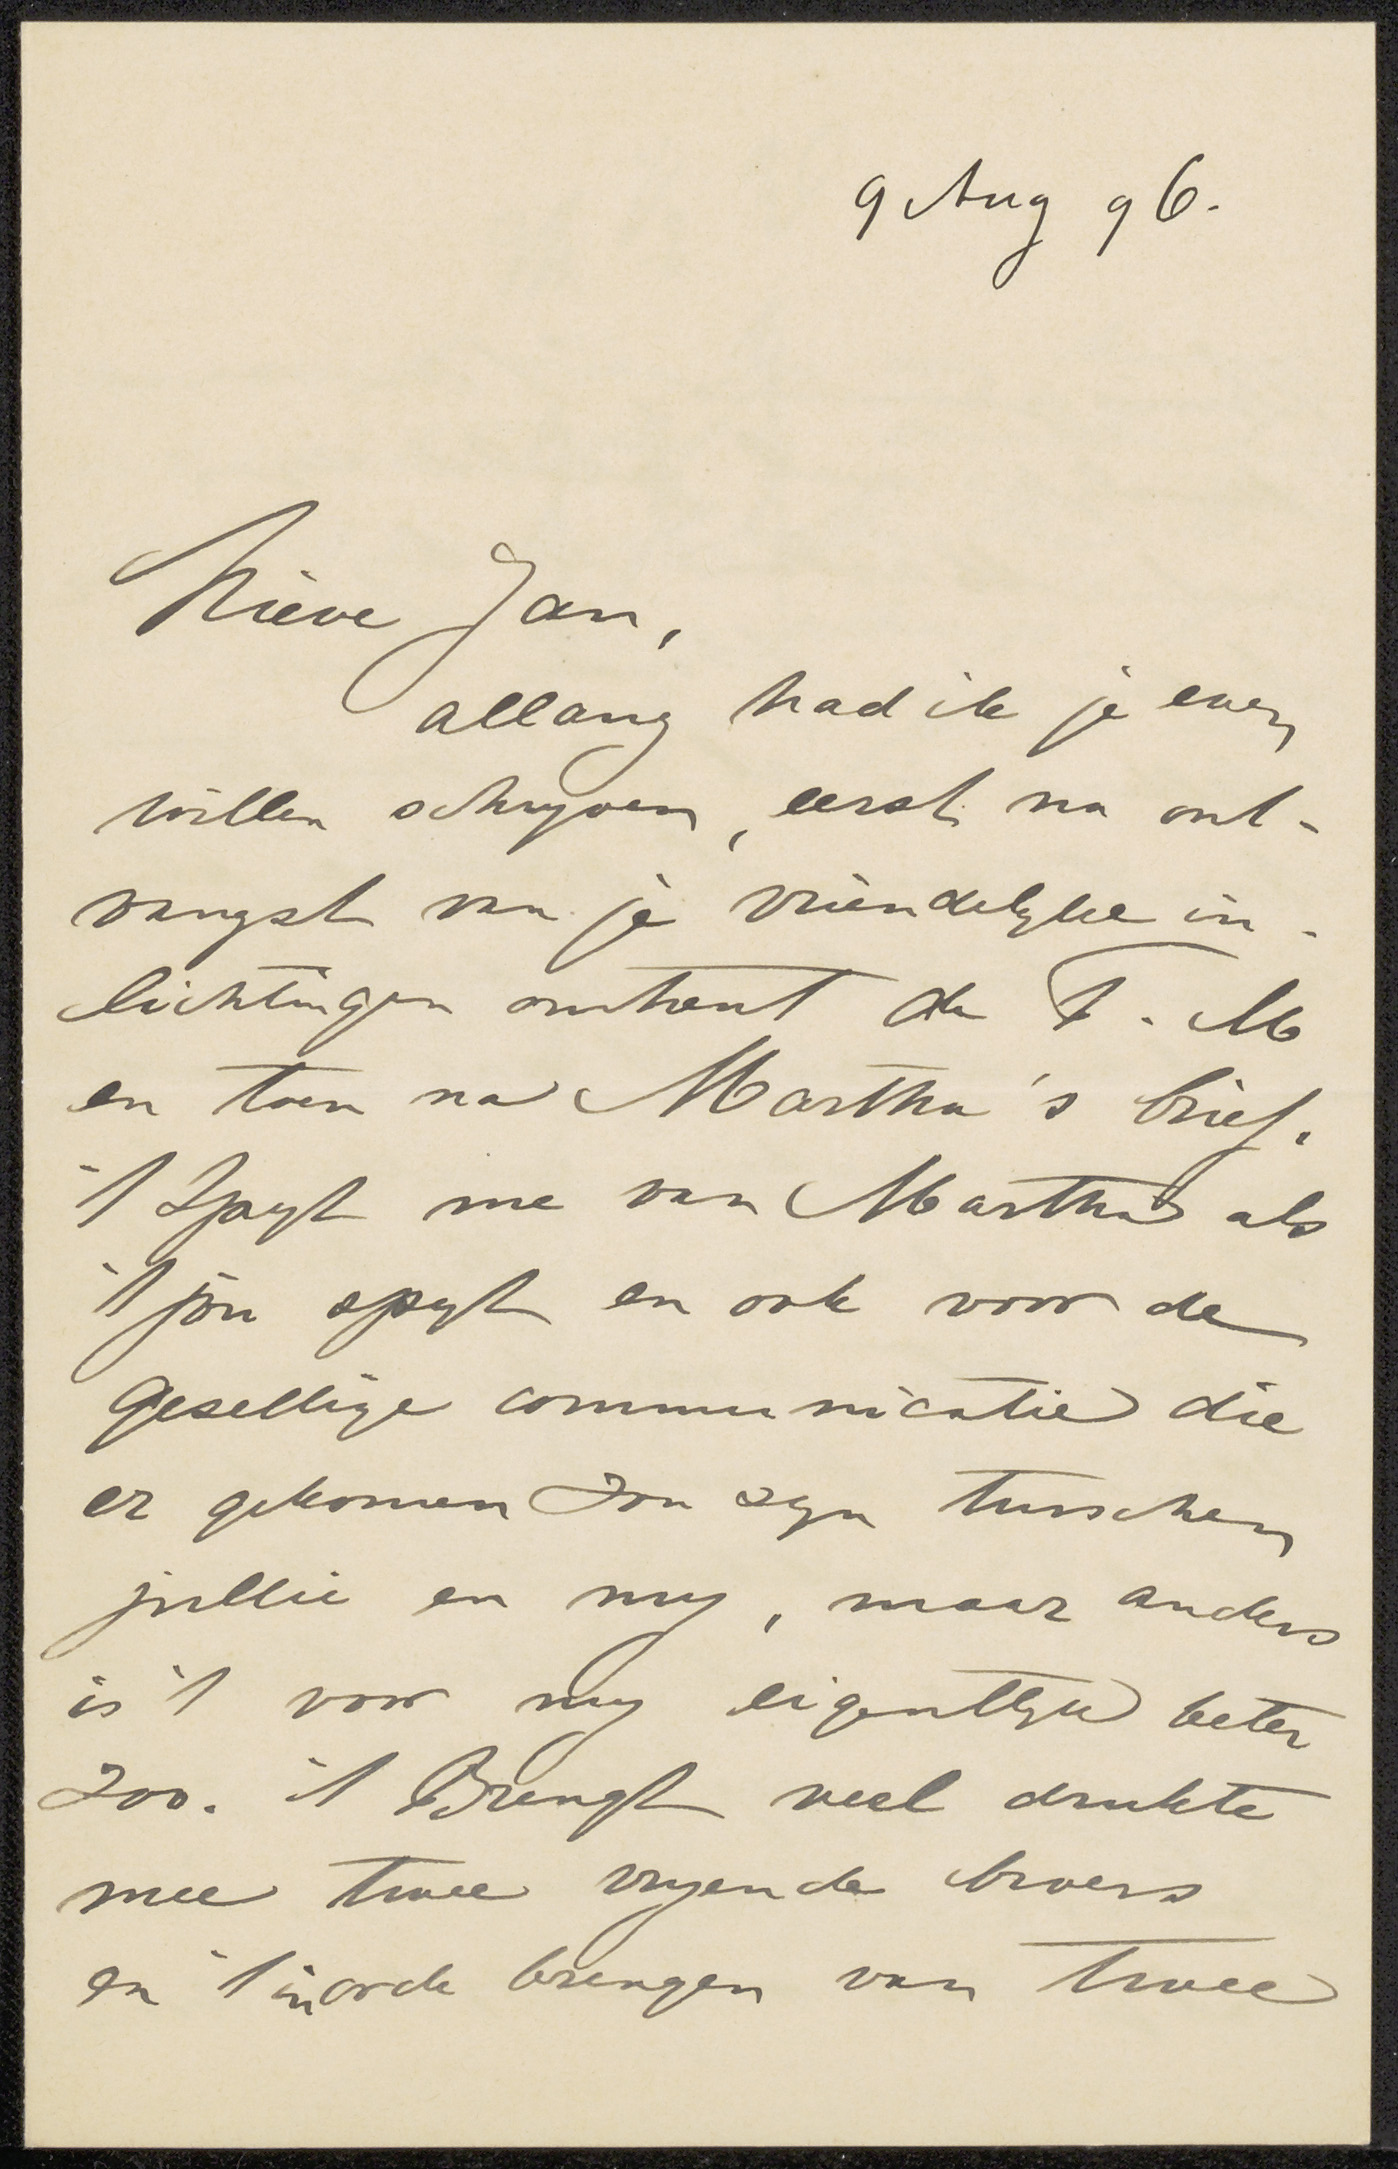 9 Aug 96.
Lieve Jan,
allang had ik je even
willen schryven, eerst na ont-
vangst van je vriendelyke in-
lichtingen omtrent de T. M
en toen na Martha's brief.
't Spyt me van Martha als
't jou spyt en ook voor de
gesellige communicatie die
er gekomen zou zyn tusschen
jullie en my, maar anders
is 't voor my eigentlyk beter
zoo. 't Brengt veel drukte
mee twee vryende broers
en 't in orde brengen van twee